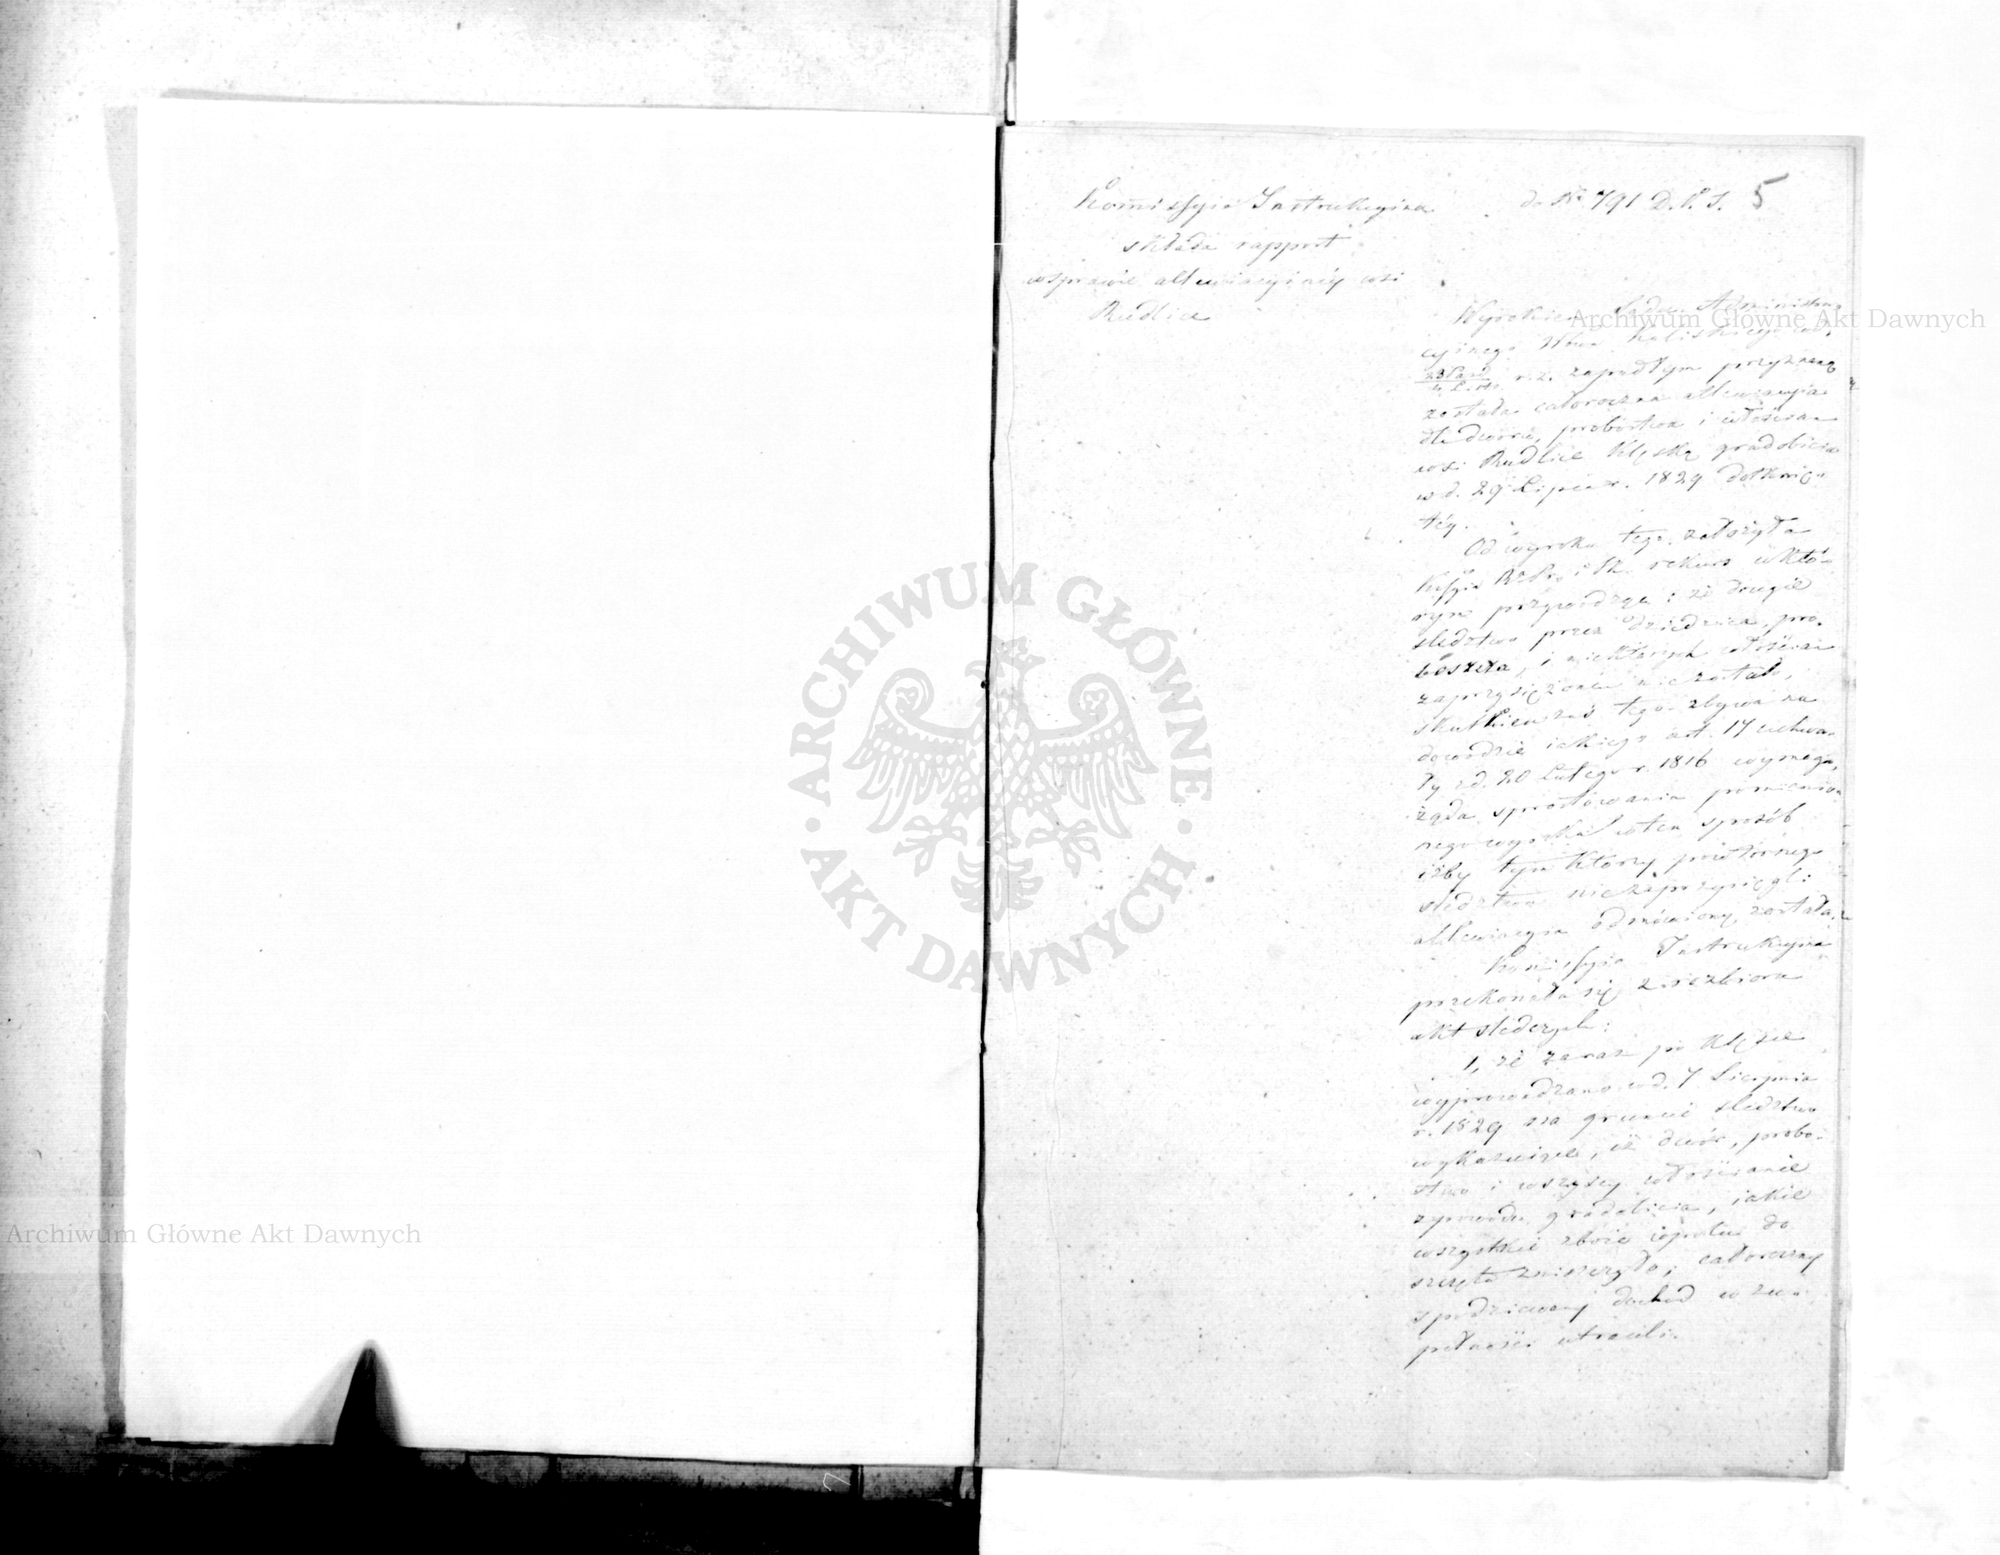 Komissyia Instrukcyina
składa rapport
wsprawie allewiacyinéy wsi
Rudlice
do Nr 791 D.P.S. 5
Wyrokiem Sądu Administra-
cyinego Wwa Kaliskiego w d.
r. z. zapadłym przyznaną
została całoroczna allewiacyia
dla dworu, probostwa i włościan
wsi Rudlice klęską gradobicia
w d. 29 Lipca r. 1829 dotknię-
téy.
Od wyroku tego założyła
Kssyia Rz. Pr. i Sk. rekurs w któ-
rym przywodząc: że drugie
śledztwo przez dziedzica, pro-
boszcza, i niektórych włościan
zaprzysiężone nie zostało,
skutkiem zaś tego zbywa na
dowodzie iakiego art. 17 uchwa-
ły z d. 20 Lutego r. 1816 wymaga,
żąda sprostowania pomienio-
nego wyroku w ten sposób
iżby tym którzy powtórnego
śledztwa nie zaprzysięgli
allewiacyia odmówioną została.
Komissyia Instrukcyina
przekonała się z rozbioru
akt śledczych:
1, że zaraz po klęsce
wyprowadzano w d. 7 Sierpnia
r. 1829 na gruncie śledztwo
wykazuiące, iż dwór, probo-
stwo i wszyscy włościanie
zpowodu gradobicia, iakie
wszystkie zboże wpolu do
szczętu zniszczyło, całoroczny
spodziewany dochód w zu-
pełności utracili.
Archiwum Główne Akt Dawnych
Archiwum Główne Akt Dawnych
ARCHIWUM GŁÓWNE
· AKT DAWNYCH ·